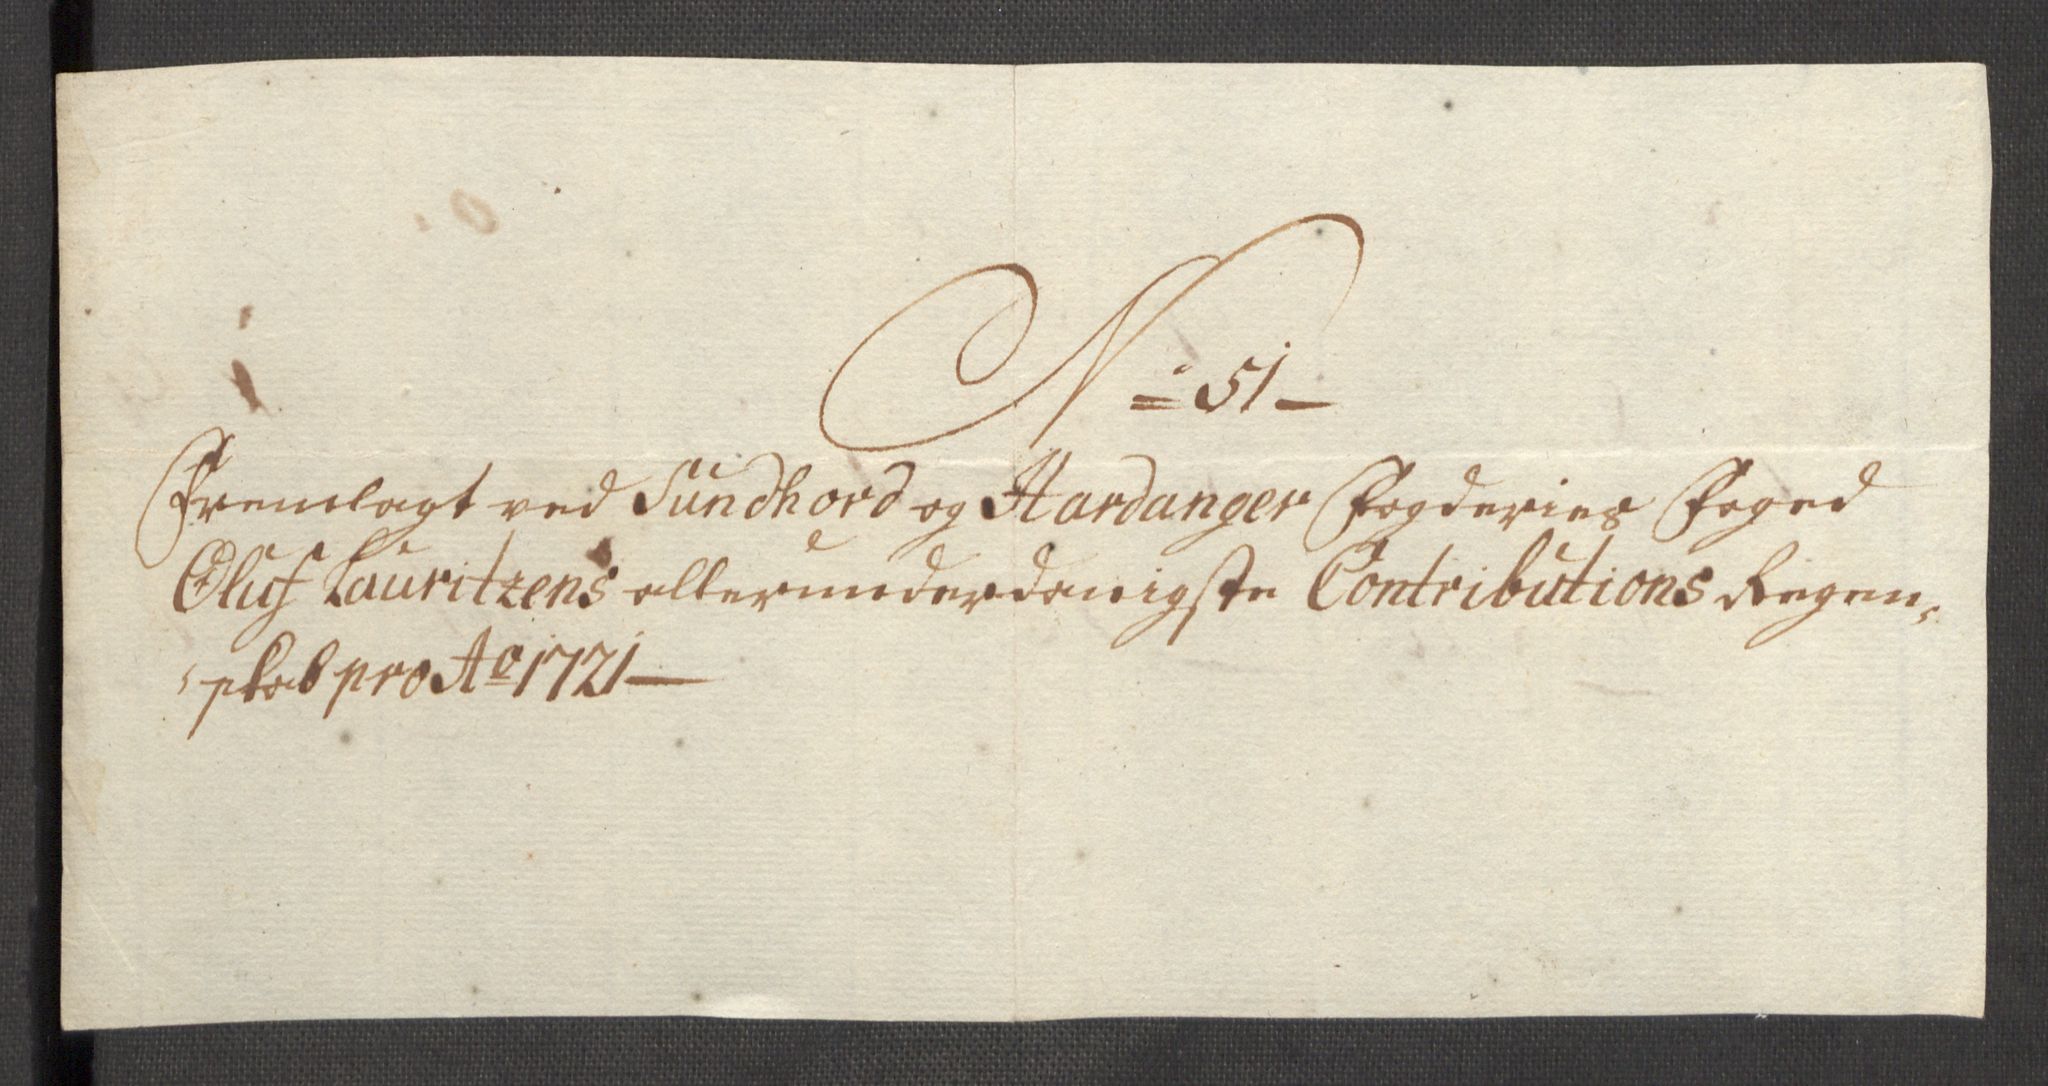 No 51
Fremlagt ved Sundhord og Hardanger Fogderies Foged
Oluf Lauritzens allerunderdanigste Contributions Regen-
skab pro Ao 1721